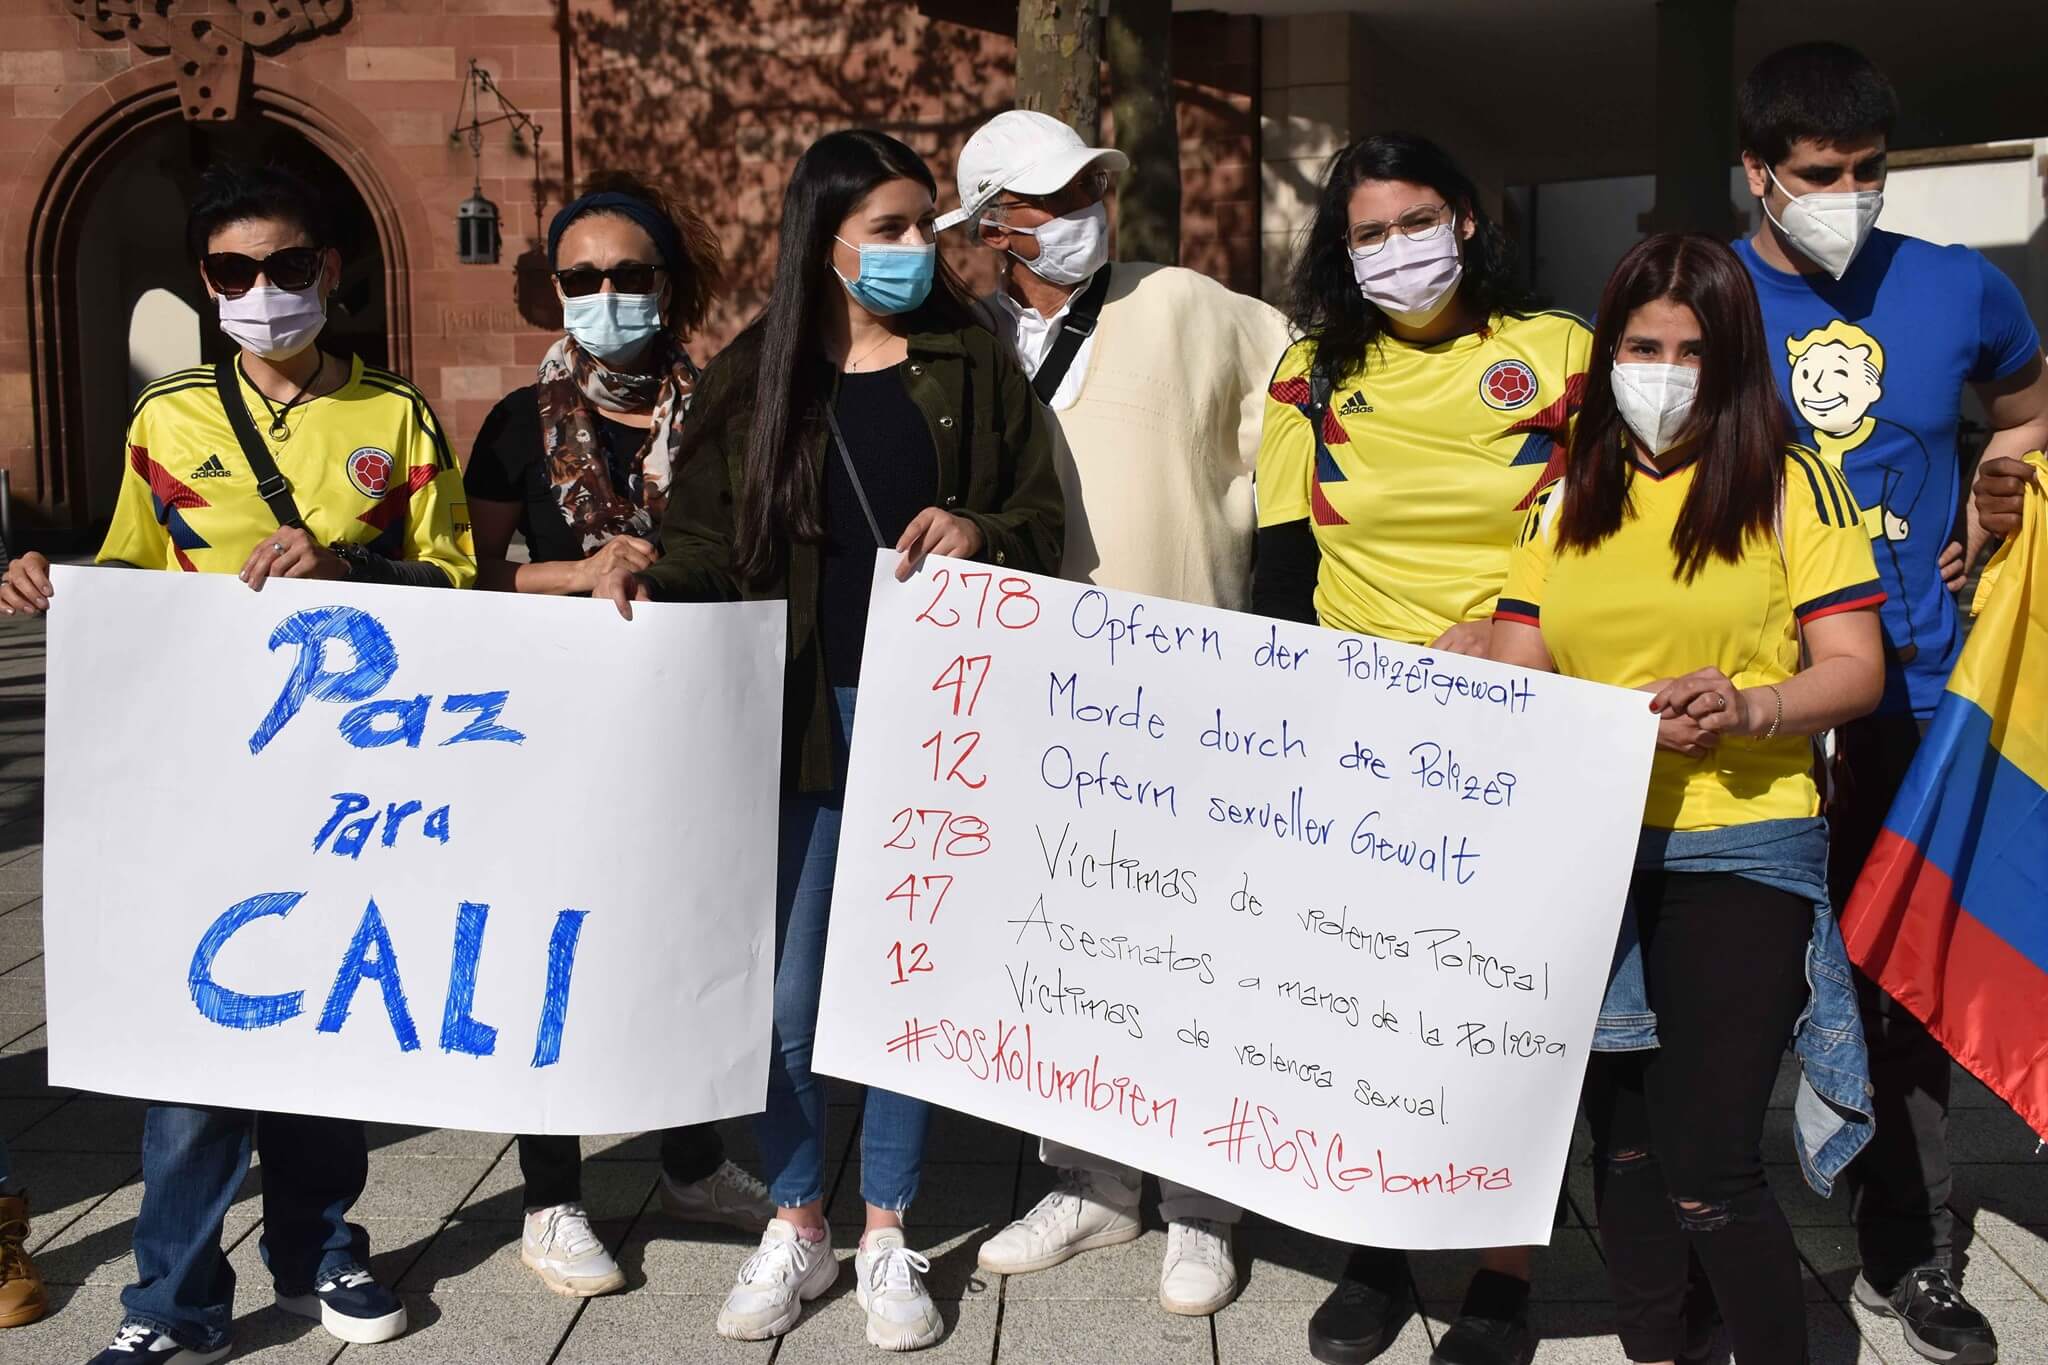 Paz
para
CALI
278 Opfern der Polizeigewalt
47 Morde durch die Polizei
12 Opfern sexueller Gewalt
278 Víctimas de violencia Policial
47 Asesinatos a manos de la Policia
12 Víctimas de violencia sexual.
#SOSKolumbien #SOSColombia
adidas
adidas